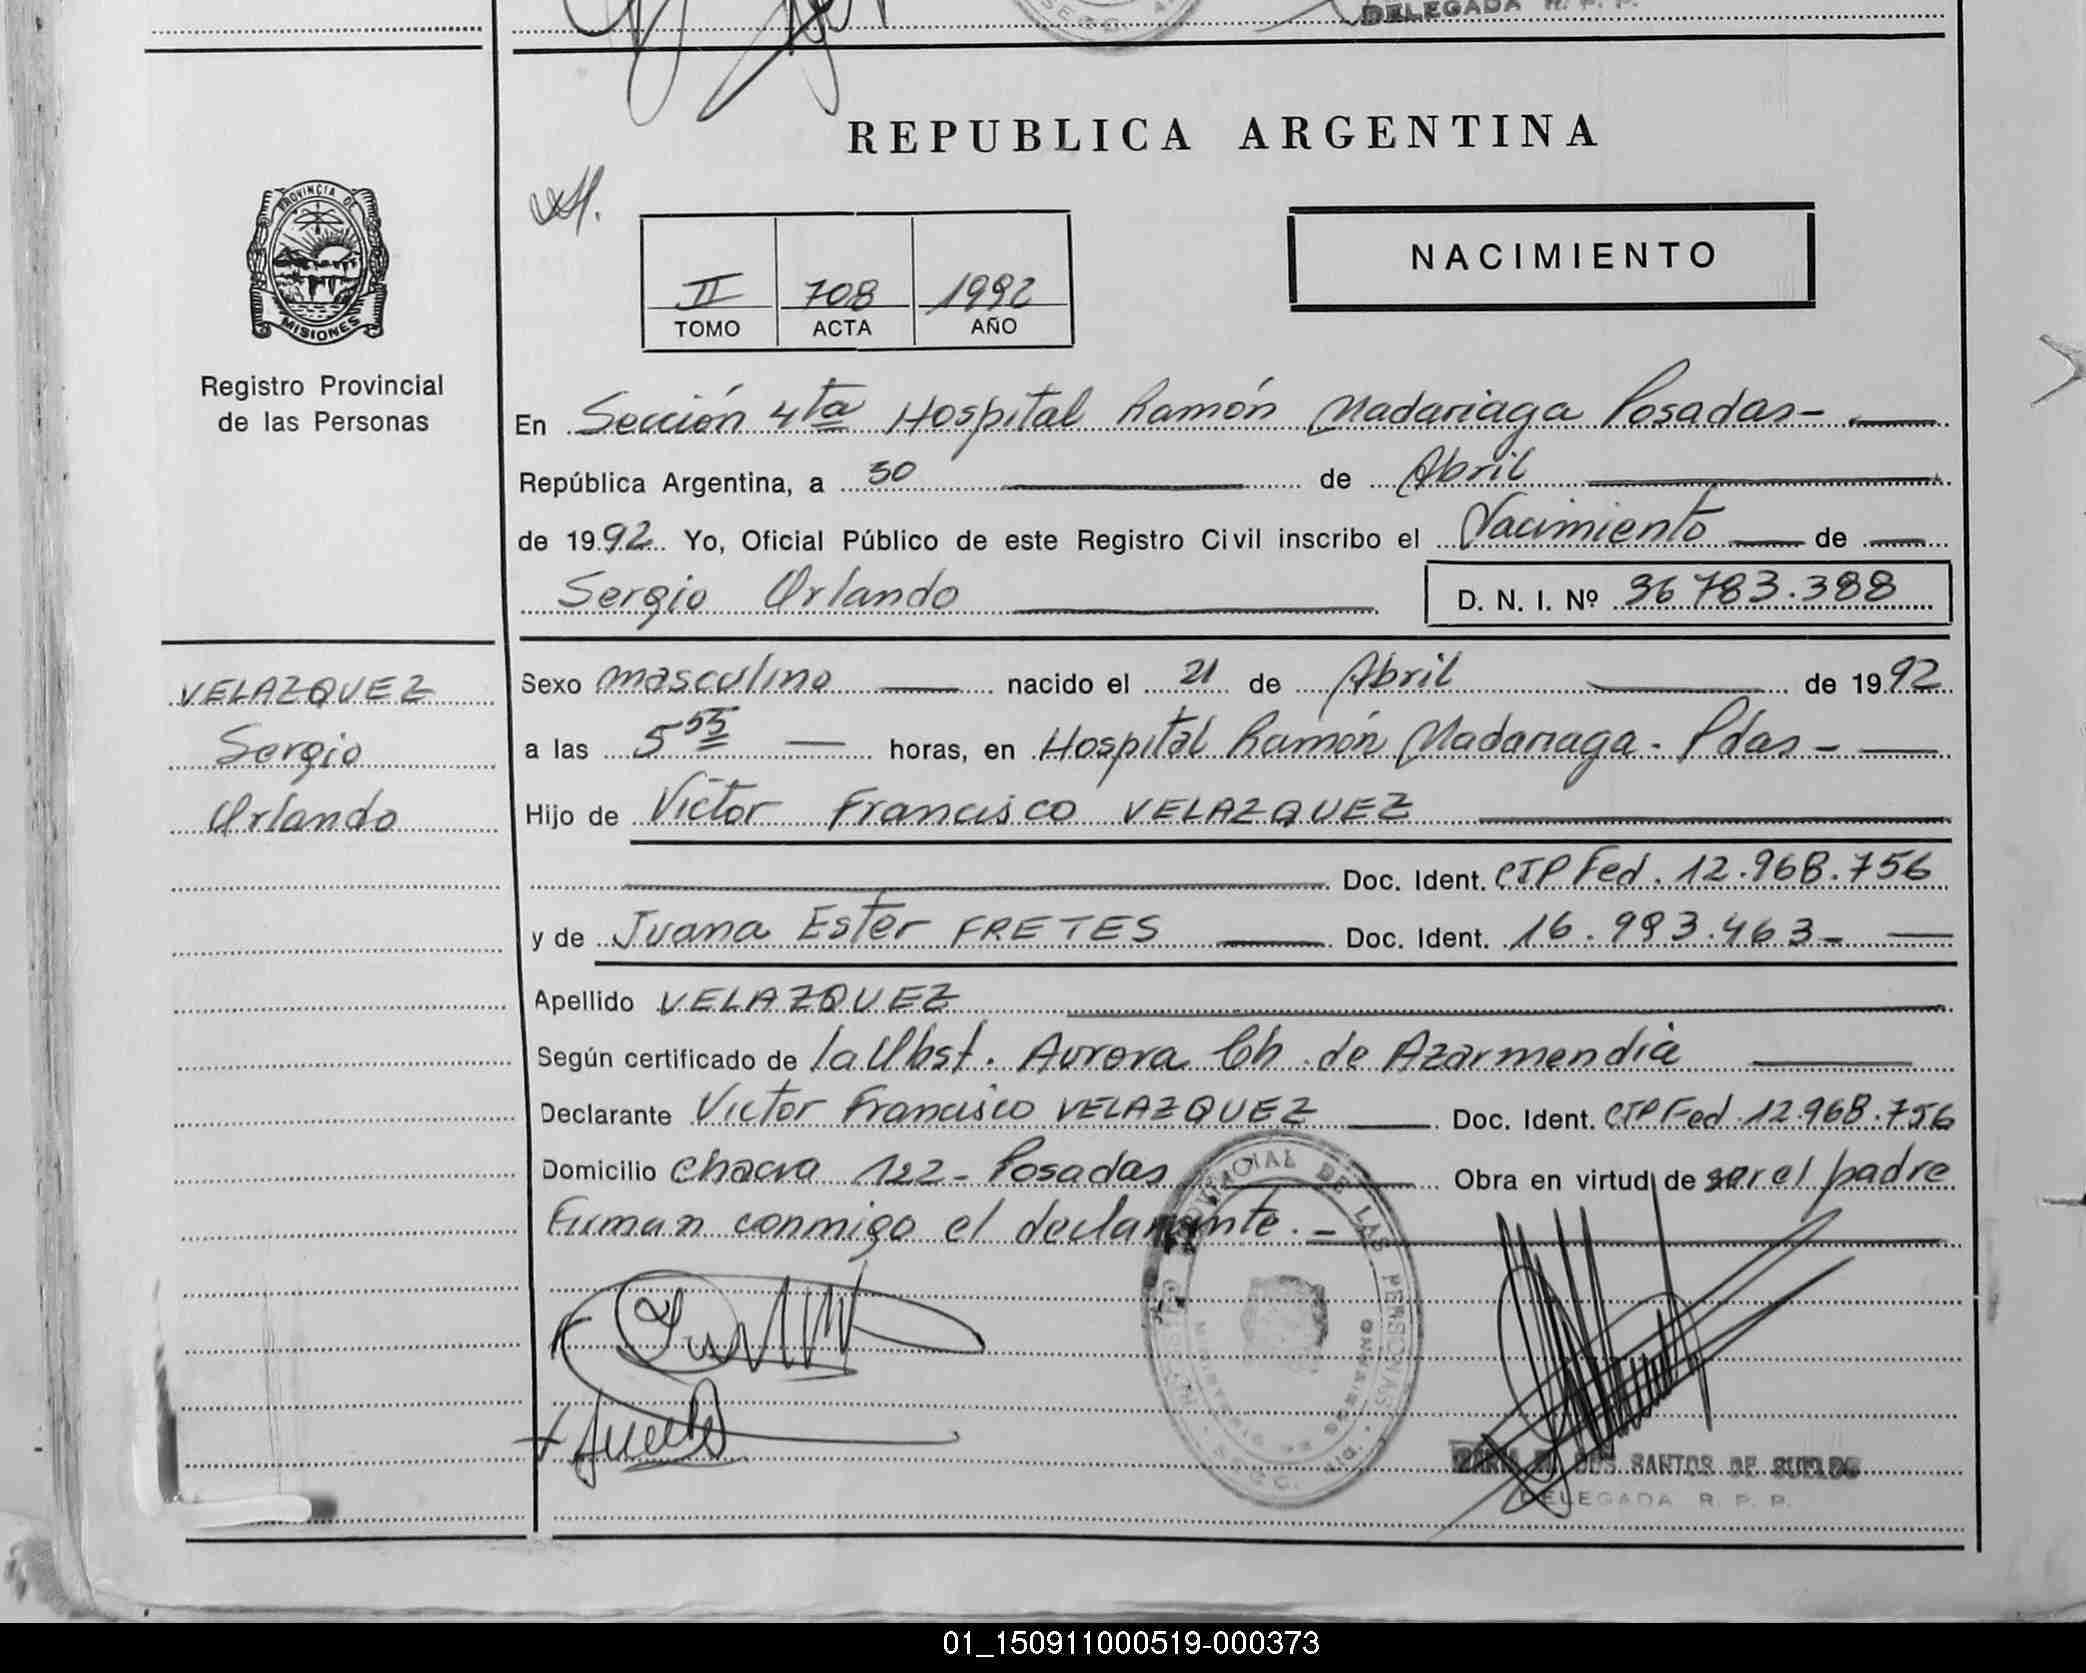 DELEGADA R. P. P.
REPUBLICA ARGENTINA
NACIMIENTO
PROVINCIA DE
MISIONES
Registro Provincial
de las Personas
II 708 1992
TOMO ACTA AÑO
En Sección 4ta Hospital Ramón Madariaga Posadas-
República Argentina, a 30 de Abril
de 1992 Yo, Oficial Público de este Registro Civil inscribo el Nacimiento de
Sergio Orlando D. N. I. Nº 36 783.388
VELAZQUEZ
Sergio
Orlando
Sexo masculino nacido el 21 de Abril de 1992
a las 5 55 horas, en Hospital Ramón Madariaga - Pdas -
Hijo de Victor Francisco VELAZQUEZ
Doc. Ident. CIP Fed. 12.968.756
y de Juana Ester FRETES Doc. Ident. 16.993.463-
Apellido VELAZQUEZ
Según certificado de la Obst. Aurora Ch. de Azarmendia
Declarante Victor Francisco VELAZQUEZ Doc. Ident. CIP Fed. 12.968.756
Domicilio Chacra 122- Posadas Obra en virtud de ser el padre
Firman conmigo el declarante. -
PROVINCIAL DE LAS PERSONAS
DOS SANTOS DE
DELEGADA R. P. P.
01_150911000519-000373